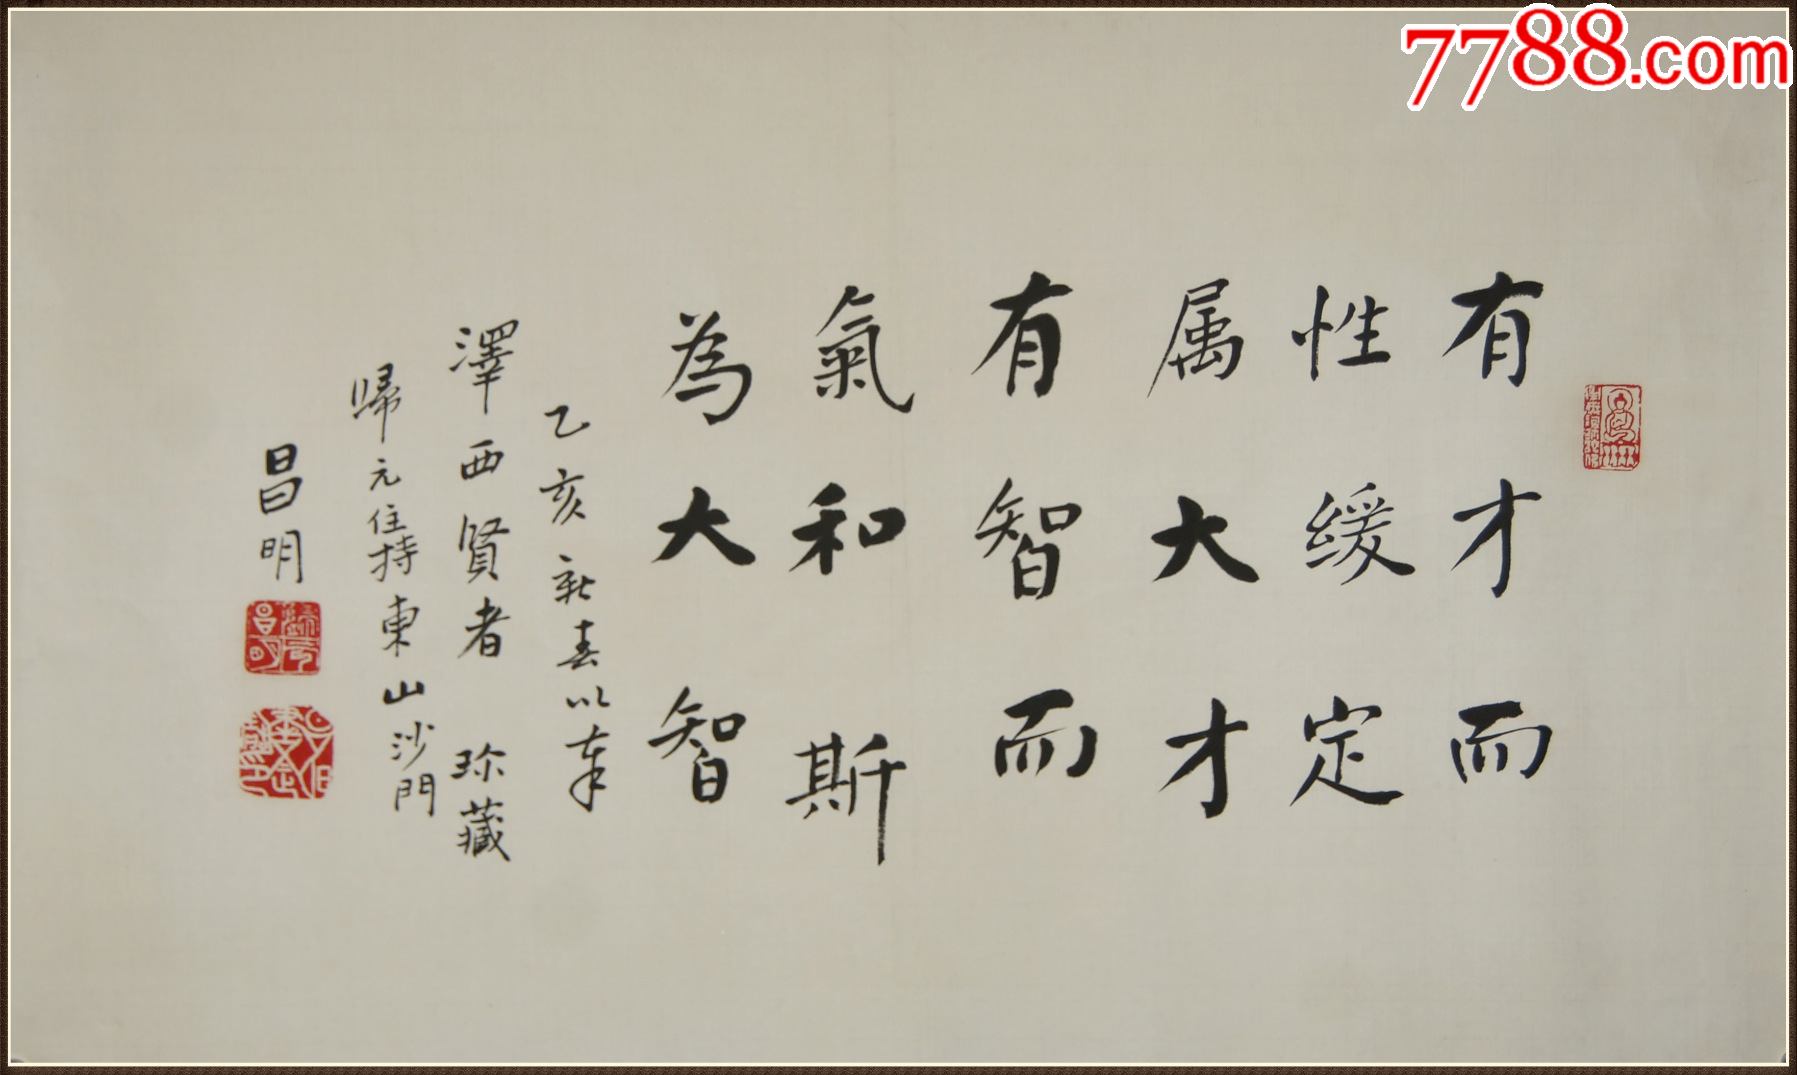 7788.com
有才而
性缓定
属大才
有智而
氣和斯
為大智
乙亥新春以奉
澤西賢者 珍藏
歸元住持東山沙門
昌明
昌明